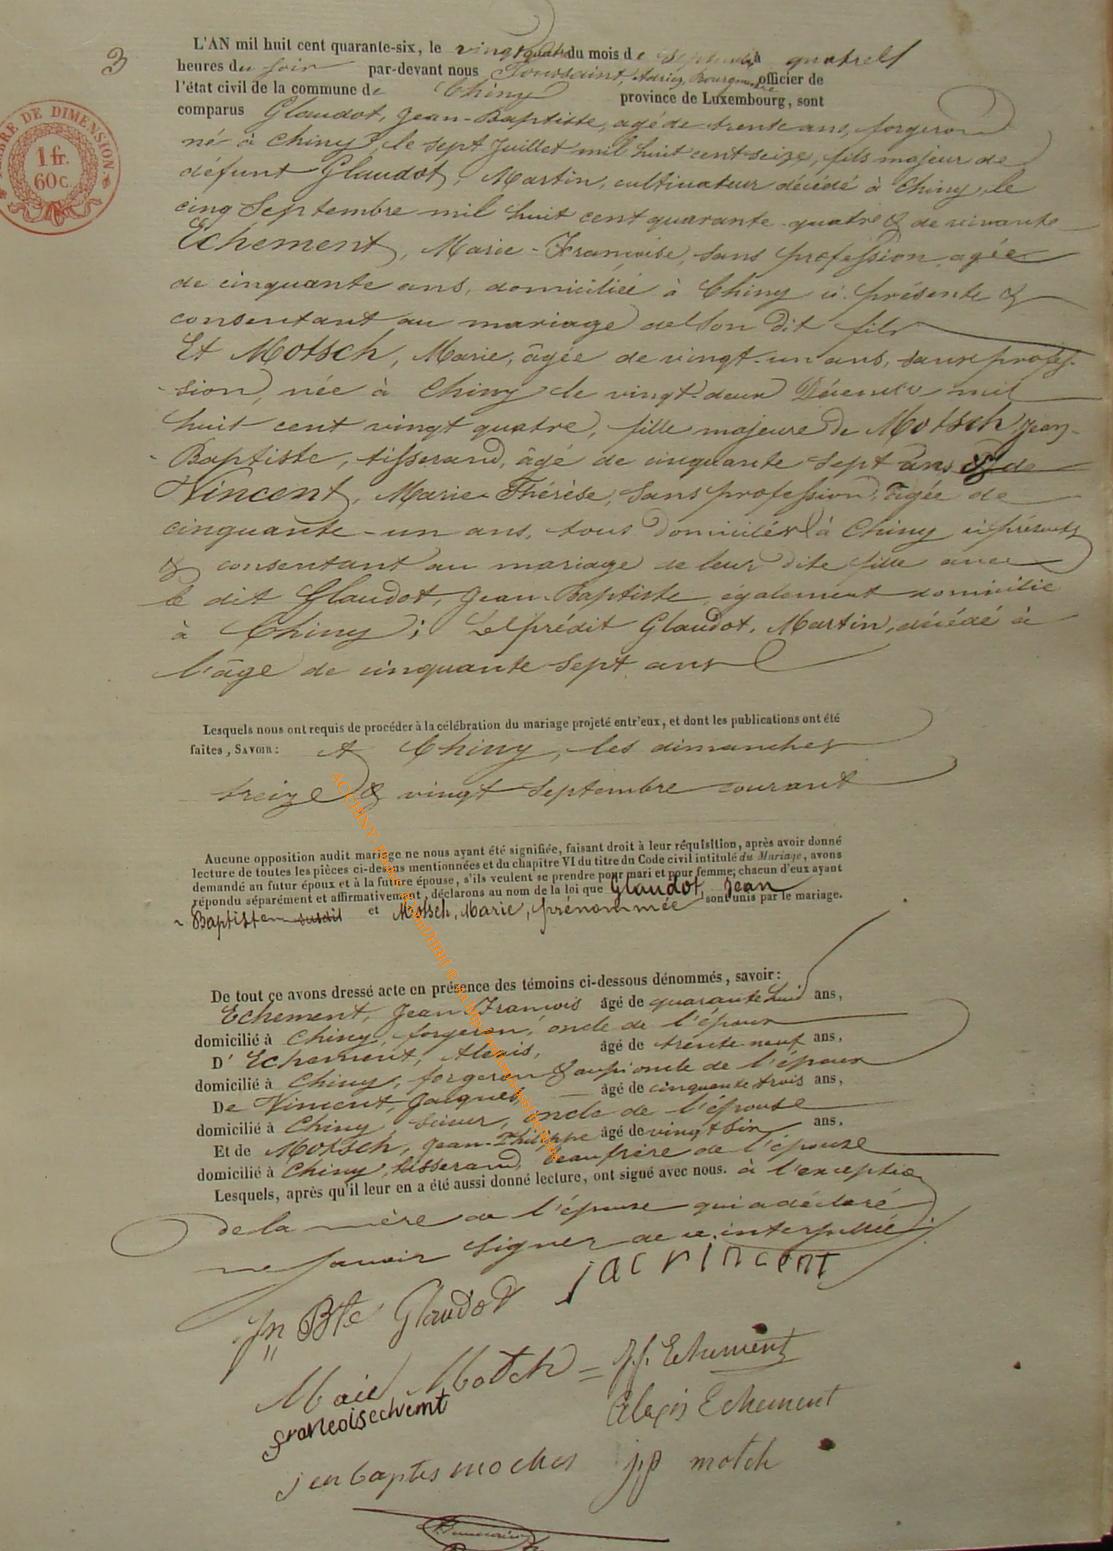 3
TIMBRE DE DIMENSION
1 fr.
60 c.
L'AN mil huit cent quarante-six, le vingt quatre du mois de Septembre à quatre
heures du soir par-devant nous Toussaint, Adrien, Bourgmestre officier de
l'état civil de la commune de Chiny province de Luxembourg, sont
comparus Glaudot, Jean-Baptiste, agé de trente ans, forgeron
né à Chiny, le sept Juillet mil huit cent seize, fils majeur de
défunt Glaudot, Martin, cultivateur décédé à Chiny le
cinq Septembre mil huit cent quarante-quatre & de vivante
Echement, Marie-Françoise, sans profession agée
de cinquante ans, domiciliée à Chiny ci présente &
consentant au mariage de son dit fils
Et Motsch, Marie, âgée de vingt-un ans, sans profes-
sion, née à Chiny le vingt-deux Décembre mil
huit cent vingt quatre, fille majeure de Motsch Jean-
Baptiste, tisserand, âgé de cinquante sept ans & de
Vincent, Marie-Thérèse, sans profession, âgée de
cinquante-un ans, tous domiciliés à Chiny ci présents
& consentant au mariage de leur dite fille avec
le dit Glaudot, Jean-Baptiste également domicilié
à Chiny; Le prédit Glaudot, Martin, décédé à
l'âge de cinquante sept ans
Lesquels nous ont requis de procéder à la célébration du mariage projeté entr'eux, et dont les publications ont été
faites, SAVOIR: A Chiny, les dimanches
treize & vingt Septembre courant
Aucune opposition audit mariage ne nous ayant été signifiée, faisant droit à leur réquisition, après avoir donné
lecture de toutes les pièces ci-dessus mentionnées et du chapitre VI du titre du Code civil intitulé du Mariage, avons
demandé au futur époux et à la future épouse, s'ils veulent se prendre pour mari et pour femme; chacun d'eux ayant
répondu séparément et affirmativement, déclarons au nom de la loi que Glaudot, Jean
Baptiste susdit et Motsch, Marie, prénommée sont unis par le mariage.
De tout ce avons dressé acte en présence des témoins ci-dessous dénommés, savoir:
Echement, Jean François âgé de quarante huit ans,
domicilié à Chiny, forgeron, oncle de l'époux
D' Echement, Alexis, âgé de trente neuf ans,
domicilié à Chiny, forgeron & aussi oncle de l'époux
De Vincent, Jacques, âgé de cinquante trois ans,
domicilié à Chiny, scieur, oncle de l'épouse
Et de Motsch, Jean-Philippe âgé de vingt six ans,
domicilié à Chiny, tisserand, beau frère de l'épouse
Lesquels, après qu'il leur en a été aussi donné lecture, ont signé avec nous. à l'exception
de la mère de l'épouse qui a déclaré
ne savoir signer de ce interpellée
Jn Bte Glaudot jac vincent
Marie Motch = J f. Echement
francoisechemt Alexis Echement
jen baptis moches jp motch